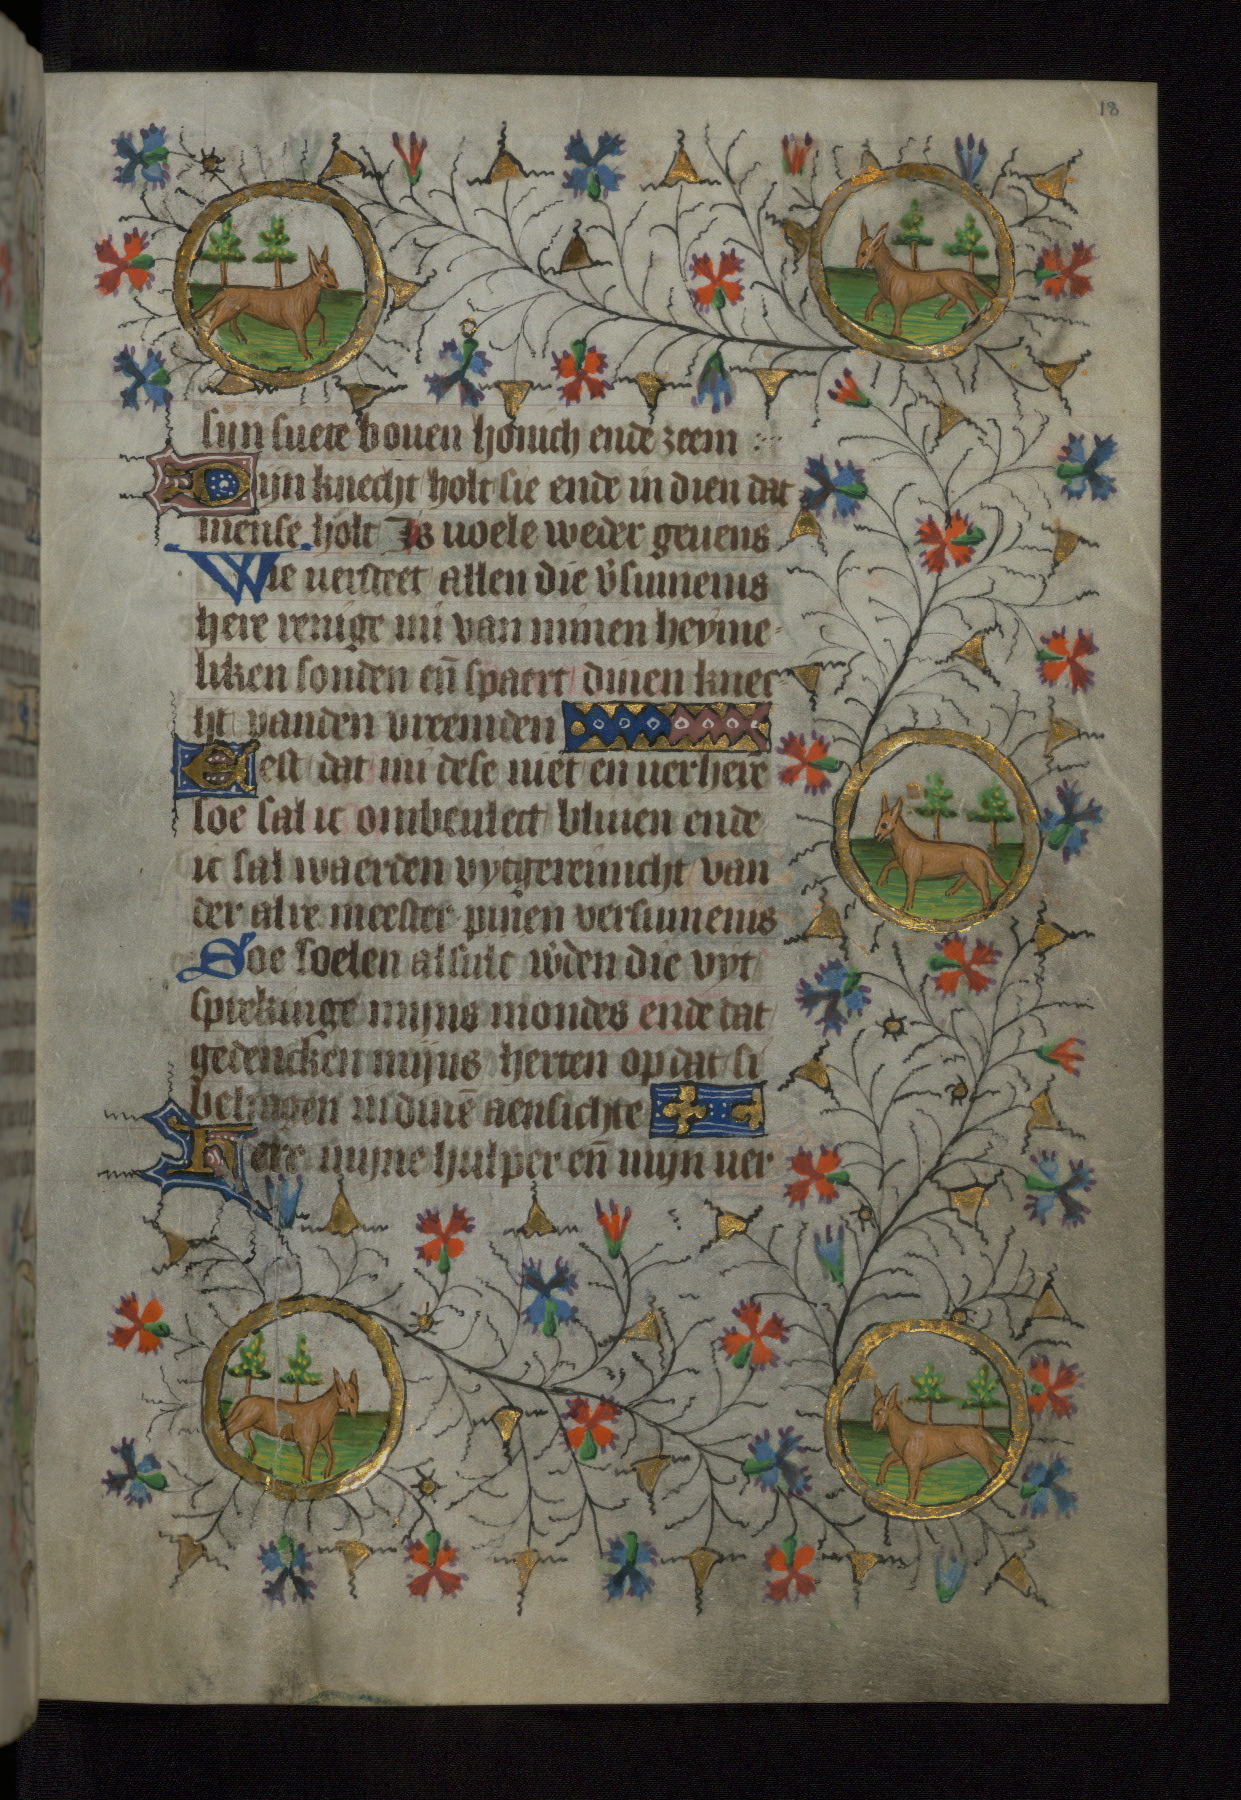 18
sijn suete bouen honich ende zeem
Dijn knecht holt sie ende in dien dat
mense holt Is uoele weder geuens
Wie uersteet allen die v̄sumenis
here reinige mi van minen heyme-
liken sonden en̄ spaert dinen knec
ht vanden vreemden
Eest dat mi dese niet en uerhere
soe sal ic onibeulect bliuen ende
ic sal waerden vytgereinicht van
der alre meester pinen versumenis
Soe soelen alsulc w̄den die vyt
sprekinge mijns mondes ende dat
gedencken mijns herten op dat si
behagen in dinē aensichte
Here mijne hulper en̄ mijn uer